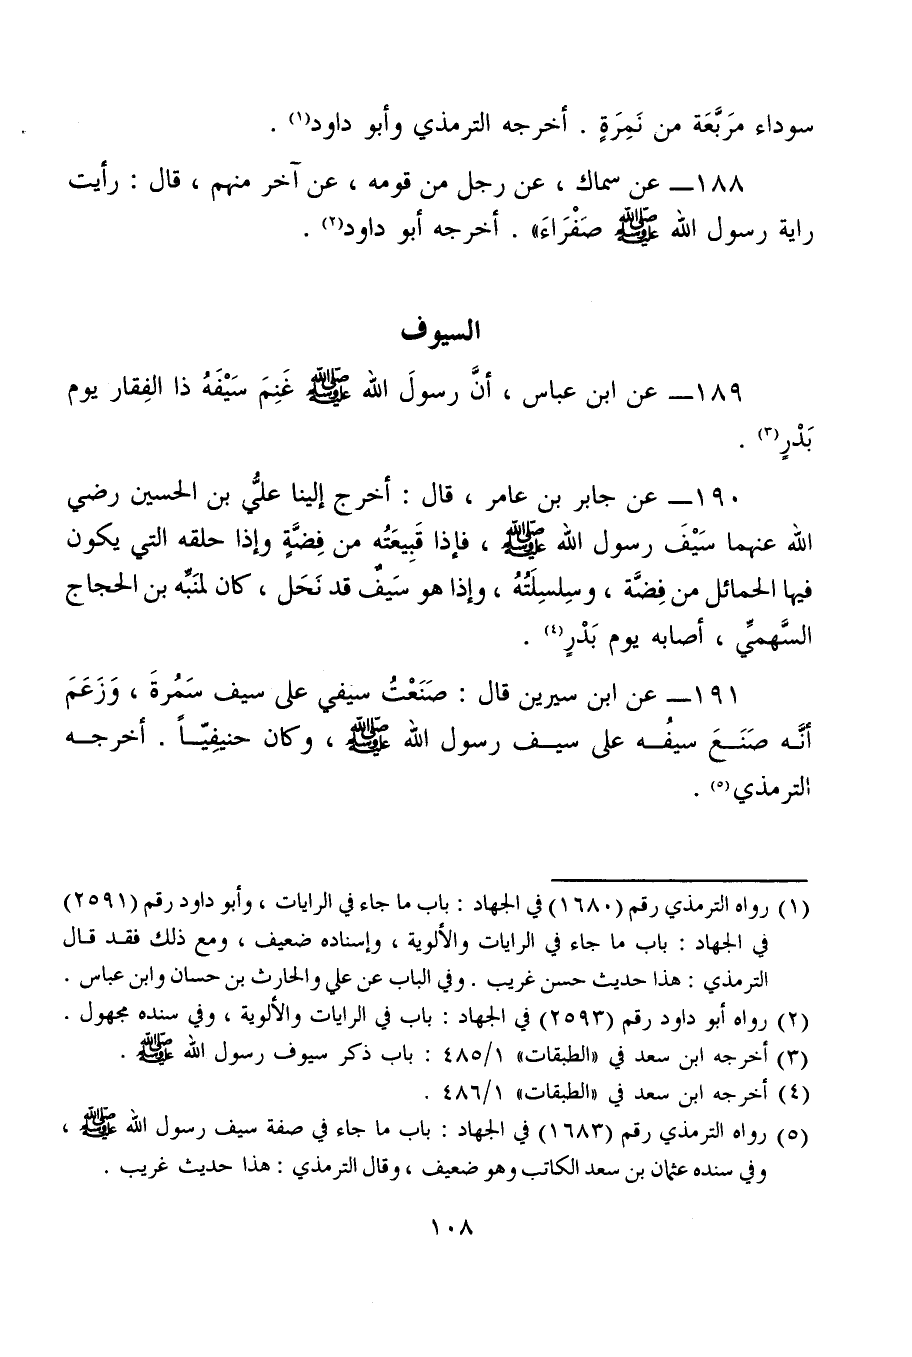 سوداء مرَبَّعَة من نَمِرَةٍ . أخرجه الترمذي وأبو داود(١) .
١٨٨ــ عن سماك ، عن رجل من قومه ، عن آخر منهم ، قال : رأيت
راية رسول الله ﷺ صَفْرَاءَ» . أخرجه أبو داود(٢) .
السيوف
١٨٩ــ عن ابن عباس ، أنَّ رسولَ الله ﷺ غَنِمَ سَيْفَهُ ذا الفِقار يوم
بَدْرٍ(٣) .
١٩٠ــ عن جابر بن عامر ، قال : أخرج إلينا عليُّ بن الحسين رضي
الله عنهما سَيْفَ رسول الله ﷺ ، فإذا قَبِيعَتُه من فِضَّةٍ وإذا حلقه التي يكون
فيها الحمائل من فِضَّة ، وسِلسِلَتُهُ ، وإذا هو سَيفٌ قد نَحَل ، كان لمنَبِّه بن الحجاج
السَّهميِّ ، أصابه يوم بَدْرٍ(٤) .
١٩١ــ عن ابن سيرين قال : صَنَعْتُ سيفي على سيف سَمُرةَ ، وَزَعَمَ
أنَّه صَنَعَ سيفُه على سيف رسول الله ﷺ ، وكان حنيفِيّاً . أخرجه
الترمذي(٥) .
(١) رواه الترمذي رقم (١٦٨٠) في الجهاد : باب ما جاء في الرايات ، وأبو داود رقم (٢٥٩١)
في الجهاد : باب ما جاء في الرايات والألوية ، وإسناده ضعيف ، ومع ذلك فقد قال
الترمذي : هذا حديث حسن غريب . وفي الباب عن علي والحارث بن حسان وابن عباس .
(٢) رواه أبو داود رقم (٢٥٩٣) في الجهاد : باب في الرايات والألوية ، وفي سنده مجهول .
(٣) أخرجه ابن سعد في «الطبقات» ٤٨٥/١ : باب ذكر سيوف رسول الله ﷺ .
(٤) أخرجه ابن سعد في «الطبقات» ٤٨٦/١ .
(٥) رواه الترمذي رقم (١٦٨٣) في الجهاد : باب ما جاء في صفة سيف رسول الله ﷺ ،
وفي سنده عثمان بن سعد الكاتب وهو ضعيف ، وقال الترمذي : هذا حديث غريب .
١٠٨